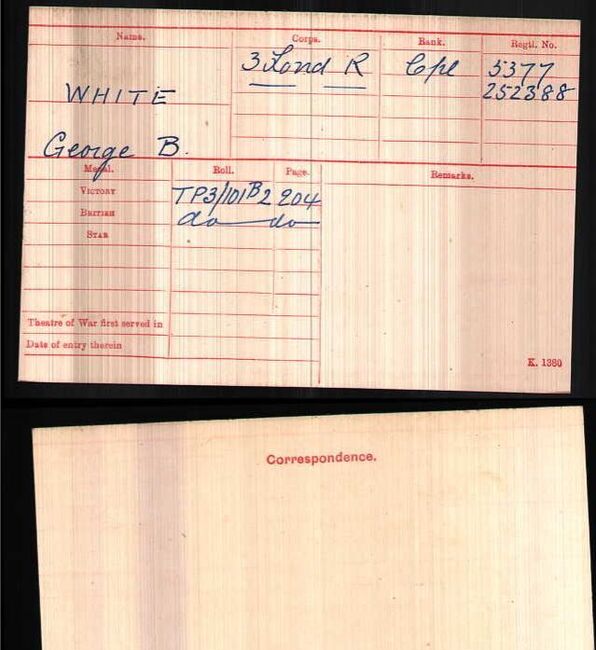 Name. Corps. Rank. Regtl. No.
3 Lond R Cpl 5377
WHITE 252388
George B.
Medal. Roll. Page. Remarks.
VICTORY TP3/101B2 204
BRITISH do do
STAR
Theatre of War first served in
Date of entry therein
K. 1380
Correspondence.